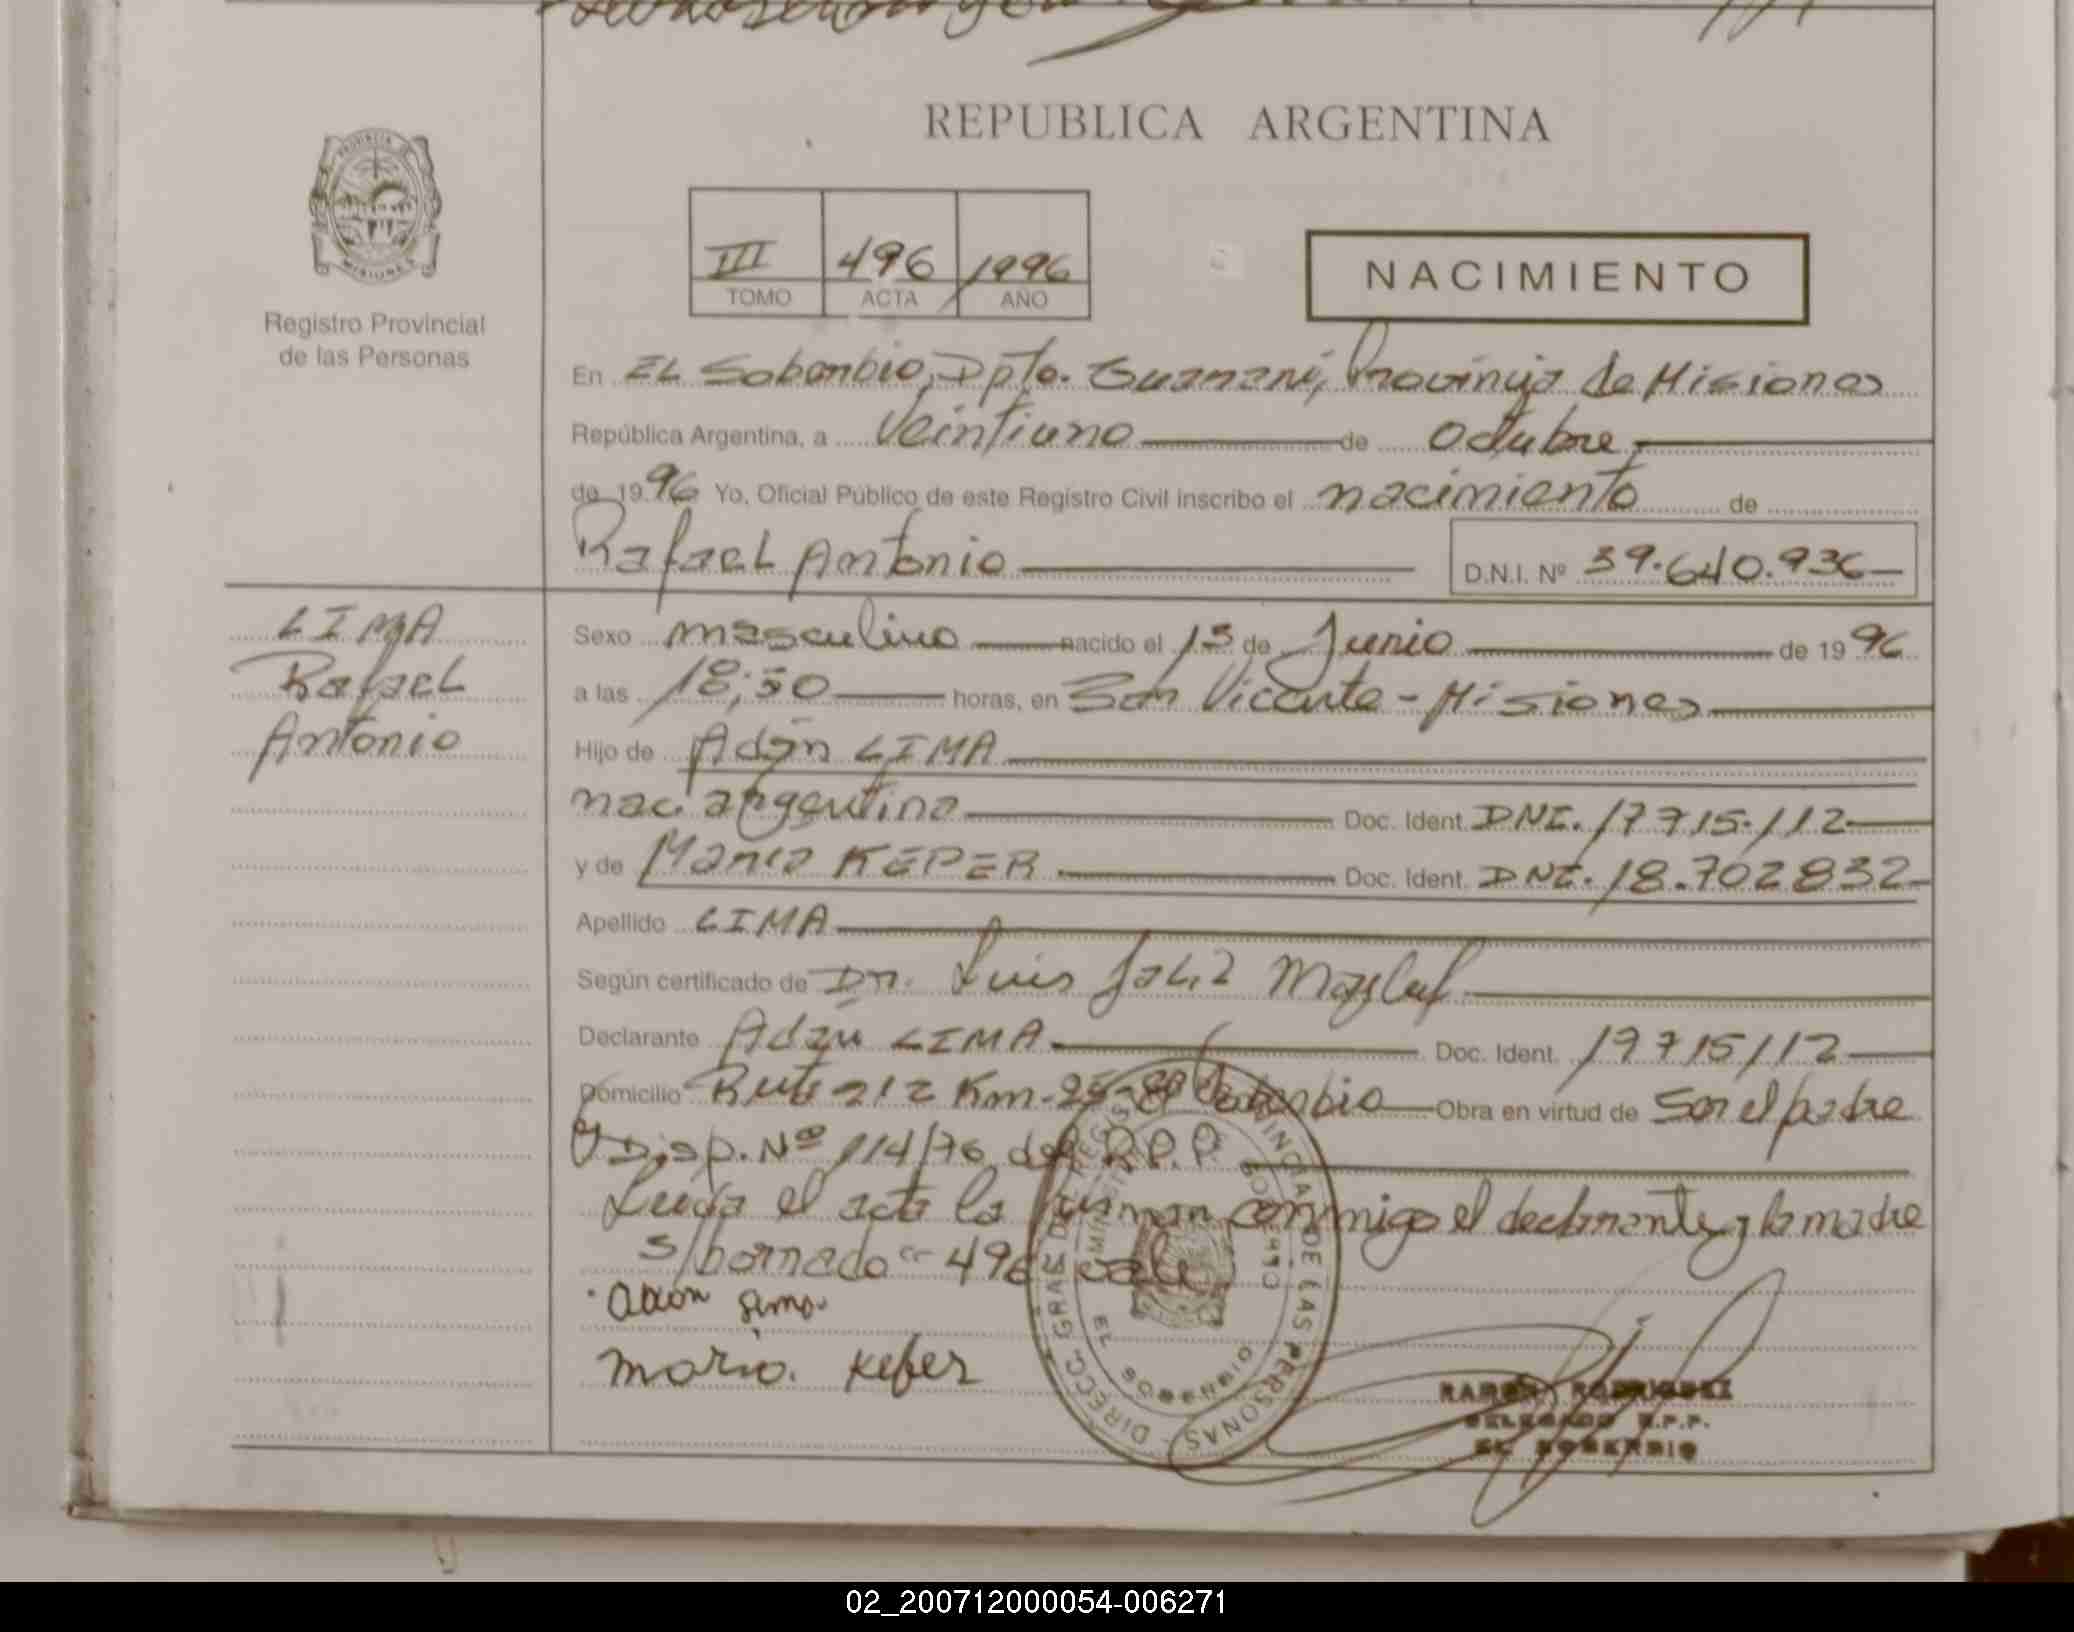 REPUBLICA ARGENTINA
PROVINCIA DE
MISIONES
Registro Provincial
de las Personas
III 496 1996
TOMO ACTA AÑO
NACIMIENTO
En EL Soberbio, Dpto. Guaraní, Provincia de Misiones
República Argentina, a veintiuno de octubre
de 1996 Yo, Oficial Público de este Registro Civil inscribo el nacimiento de
Rafael Antonio D.N.I. Nº 39.640.936
LIMA
Rafael
Antonio
Sexo masculino nacido el 13 de Junio de 1996
a las 18:30 horas, en San Vicente - Misiones
Hijo de Adán LIMA
nac. argentina Doc. Ident. DNI. 17715.112
y de María KEPER Doc. Ident. DNI. 18.702832
Apellido LIMA
Según certificado de Dr. Luis
Declarante Adán LIMA Doc. Ident. 17715112
Domicilio Ruta 212 Km. 25 - El Soberbio Obra en virtud de Ser el padre
y Disp. Nº 114/76 del R.P.P.
Leída el acta la firman conmigo el declarante y la madre
s/borrado "496 vale
adan lima
maria. Keper
DIRECC. GRAL DE REGISTRO PROVINCIAL DE LAS PERSONAS
MINISTERIO DE GOBIERNO
EL SOBERBIO
RAMON RODRIGUEZ
DELEGADO R.P.P.
EL SOBERBIO
02_200712000054-006271